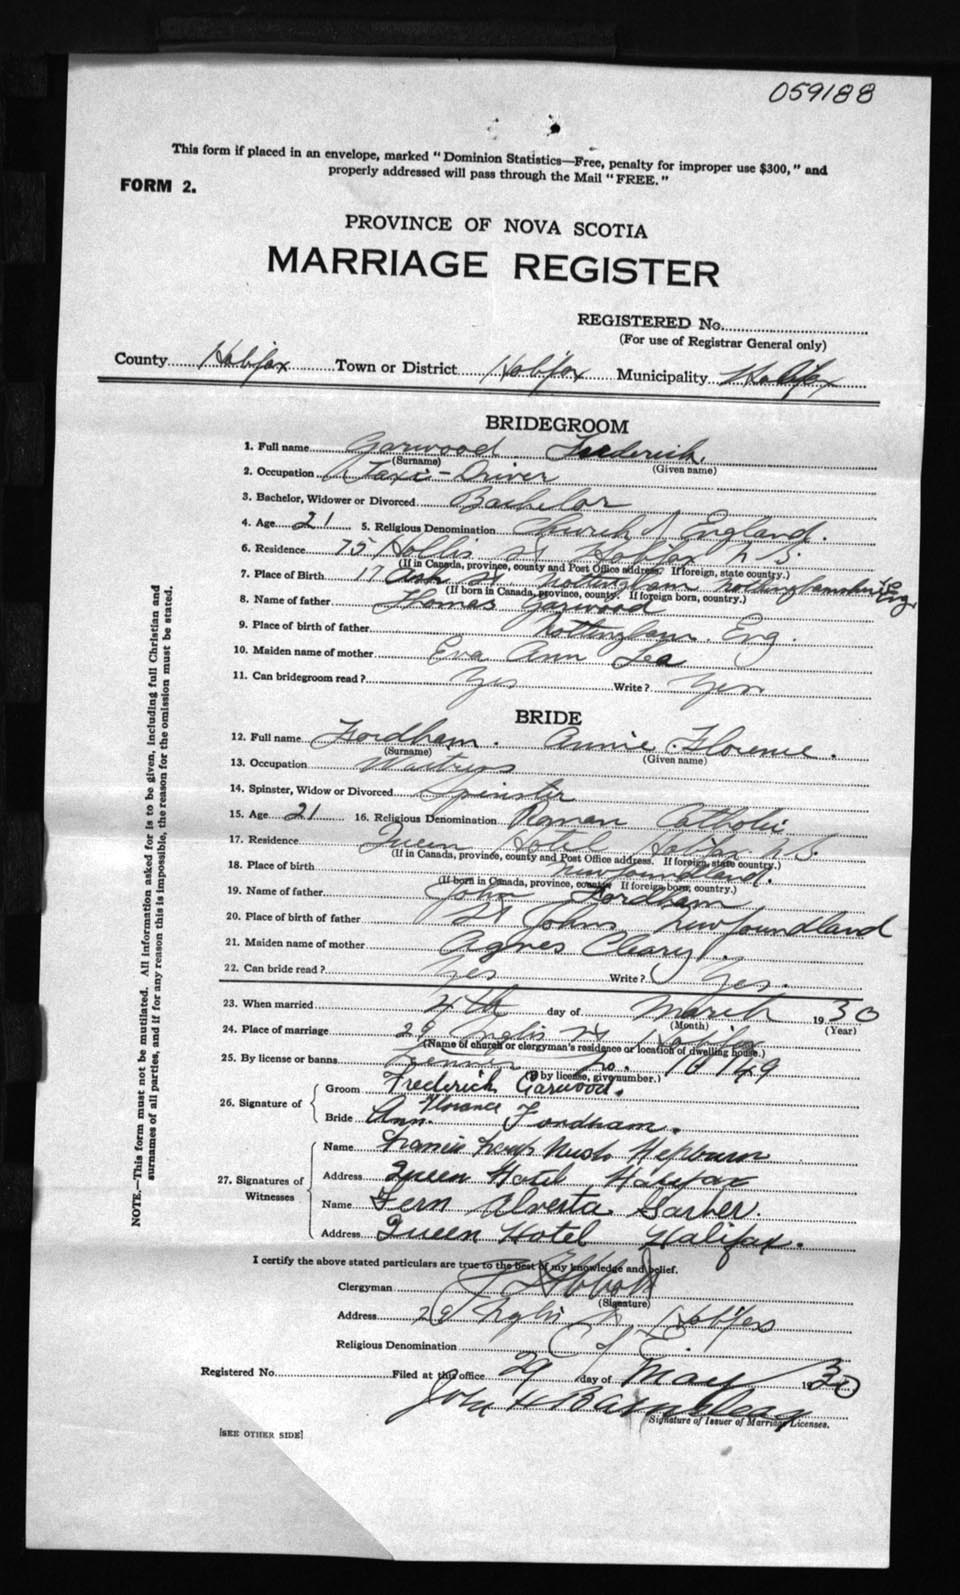 059188
This form if placed in an envelope, marked "Dominion Statistics—Free, penalty for improper use $300," and
properly addressed will pass through the Mail "FREE."
FORM 2.
PROVINCE OF NOVA SCOTIA
MARRIAGE REGISTER
REGISTERED No.
(For use of Registrar General only)
County Halifax Town or District Halifax Municipality Halifax
BRIDEGROOM
1. Full name Garwood Frederick.
(Surname) (Given name)
2. Occupation Taxi-Driver
3. Bachelor, Widower or Divorced Bachelor
4. Age 21 5. Religious Denomination Church of England.
6. Residence 75 Hollis St Halifax N S.
(If in Canada, province, county and Post Office address. If foreign, state country.)
7. Place of Birth 17 Ash St. Nottingham Nottinghamshire Eng.
(If born in Canada, province, county. If foreign born, country.)
8. Name of father Thomas Garwood
9. Place of birth of father Nottingham. Eng.
10. Maiden name of mother Eva Ann Lea
11. Can bridegroom read? Yes Write? Yes
BRIDE
12. Full name Fordham. Annie Florence.
(Surname) (Given name)
13. Occupation Waitress
14. Spinster, Widow or Divorced Spinster
15. Age 21 16. Religious Denomination Roman Catholic
17. Residence Queen Hotel Halifax N S.
(If in Canada, province, county and Post Office address. If foreign, state country.)
18. Place of birth Newfoundland.
(If born in Canada, province, county If foreign born, country.)
19. Name of father John Fordham
20. Place of birth of father St Johns Newfoundland
21. Maiden name of mother Agnes Cleary.
22. Can bride read? Yes Write? Yes.
23. When married 4th day of March 1930
(Month) (Year)
24. Place of marriage 29 Inglis St Halifax
(Name of church or clergyman's residence or location of dwelling house.)
25. By license or banns License No. 10749
(If by license, give number.)
26. Signature of
Groom Frederick Garwood.
Bride Ann. Florance Fordham.
27. Signatures of Witnesses
Name Francis Hepburn
Address Queen Hotel Halifax
Name Fern Alverta
Address Queen Hotel Halifax.
I certify the above stated particulars are true to the best of my knowledge and belief.
Clergyman
(Signature)
Address 29 Inglis St Halifax
Religious Denomination C of E.
Registered No. Filed at this office 29 day of May 1930
John H Barnstead
Signature of Issuer of Marriage Licenses.
[SEE OTHER SIDE]
NOTE.—This form must not be mutilated. All information asked for is to be given, including full Christian and
surnames of all parties, and if for any reason this is impossible, the reason for the omission must be stated.